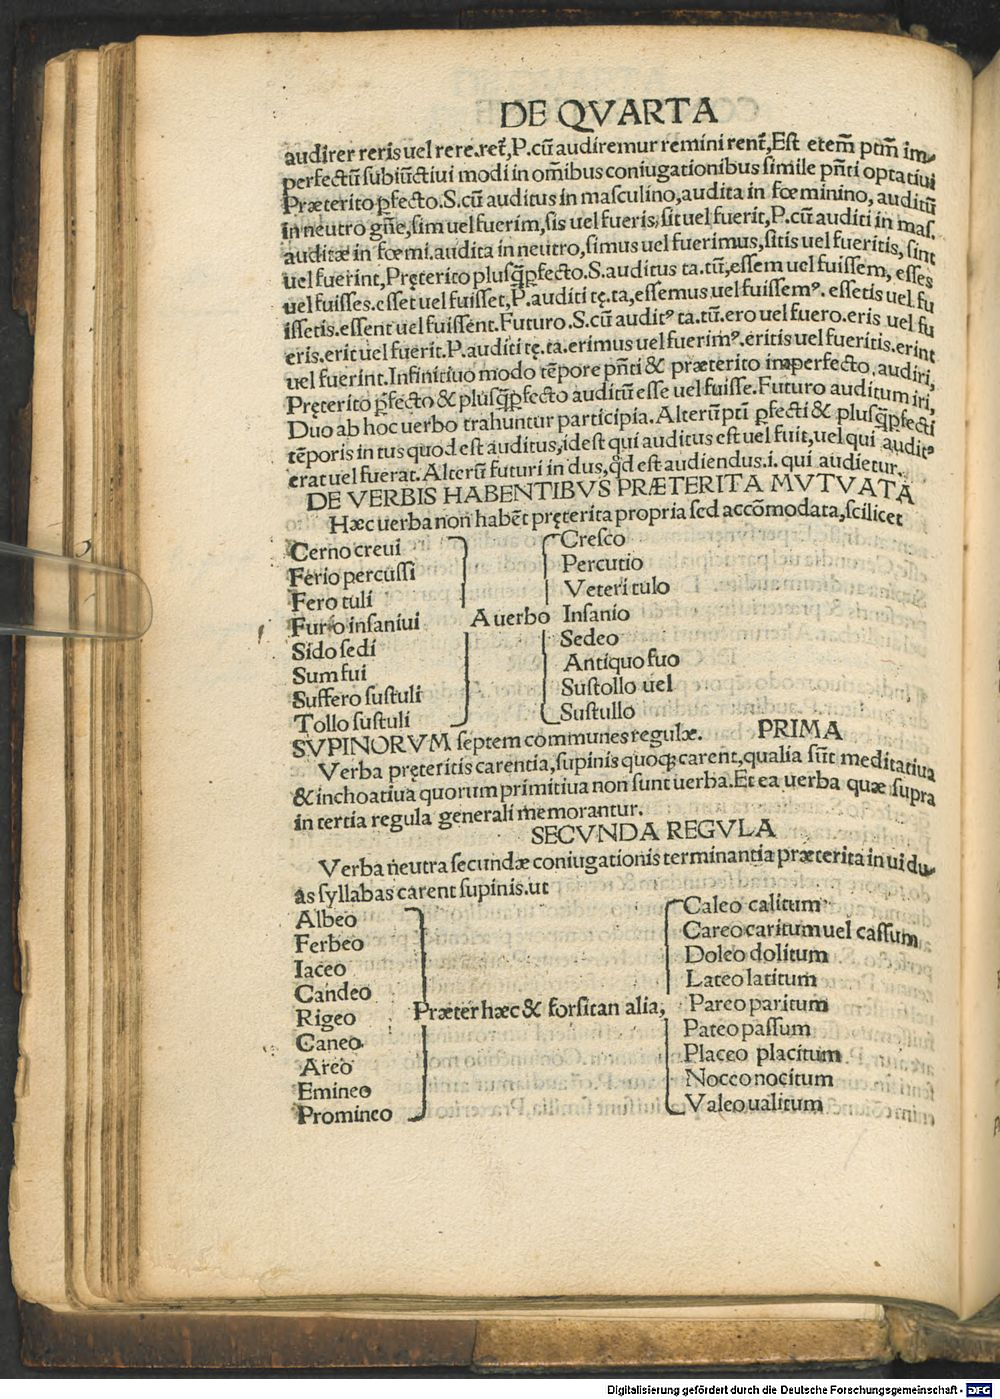 DE QVARTA
audirer reris uel rere.ret̃,P.cũ audiremur remini rent̃,Est etem̃ ptm̃ im⸗
perfectũ subiũctiui modi in om̃ibus coniugationibus simile pñti optatiui
Præterito p̱fecto.S.cũ auditus in masculino,audita in fœminino, auditũ
in neutro gñe,sim uel fuerim,sis uel fueris,sit uel fuerit,P.cũ auditi in mas.
auditæ in fœmi.audita in neutro,simus uel fuerimus,sitis uel fueritis,sint
uel fuerint,Pręterito plusq̃p̱fecto.S.auditus ta.tũ,essem uel fuissem, esses
uel fuisses.esset uel fuisset,P.auditi tę.ta,essemus uel fuissemꝰ. essetis uel fu
issetis.essent uel fuissent.Futuro.S.cũ auditꝰ ta.tũ.ero uel fuero.eris uel fu
eris.erit uel fuerit.P.auditi tę.ta.erimus uel fuerimꝰ.eritis uel fueritis.erint
uel fuerint.Infinitiuo modo tẽpore pñti & præterito imperfecto.audiri,
Pręterito p̱fecto & plusq̃p̱fecto auditũ esse uel fuisse.Futuro auditum iri,
Duo ab hoc uerbo trahuntur participia.Alterũ ptĩ p̱fecti & plusq̃p̱fecti
tẽporis in tus quod est auditus,idest qui auditus est uel fuit,uel qui auditꝰ
erat uel fuerat.Alterũ futuri in dus,q̃d est audiendus.i. qui audietur.
DE VERBIS HABENTIBVS PRÆTERITA MVTVATA
Hæc uerba non habẽt pręterita propria sed accõmodata,scilicet
Cerno creui
Ferio percussi
Fero tuli
Furio insaniui
Sido sedi
Sum fui
Suffero sustuli
Tollo sustuli
A uerbo
Cresco
Percutio
Veteri tulo
Insanio
Sedeo
Antiquo fuo
Sustollo uel
Sustullo
SVPINORVM septem communes regulæ. PRIMA
Verba pręteritis carentia,supinis quoqꝫ carent,qualia sũt meditatiua
& inchoatiua quorum primitiua non sunt uerba.Et ea uerba quæ supra
in tertia regula generali memorantur.
SECVNDA REGVLA
Verba neutra secundæ coniugationis terminantia præterita in ui du⸗
as syllabas carent supinis.ut
Albeo
Ferbeo
Iaceo
Candeo
Rigeo
Caneo
Areo
Emineo
Promineo
Præter hæc & forsitan alia,
Caleo calitum
Careo caritum uel cassum
Doleo dolitum
Lateo latitum
Pareo paritum
Pateo passum
Placeo placitum
Noceo nocitum
Valeo ualitum
Digitalisierung gefördert durch die Deutsche Forschungsgemeinschaft - DFG